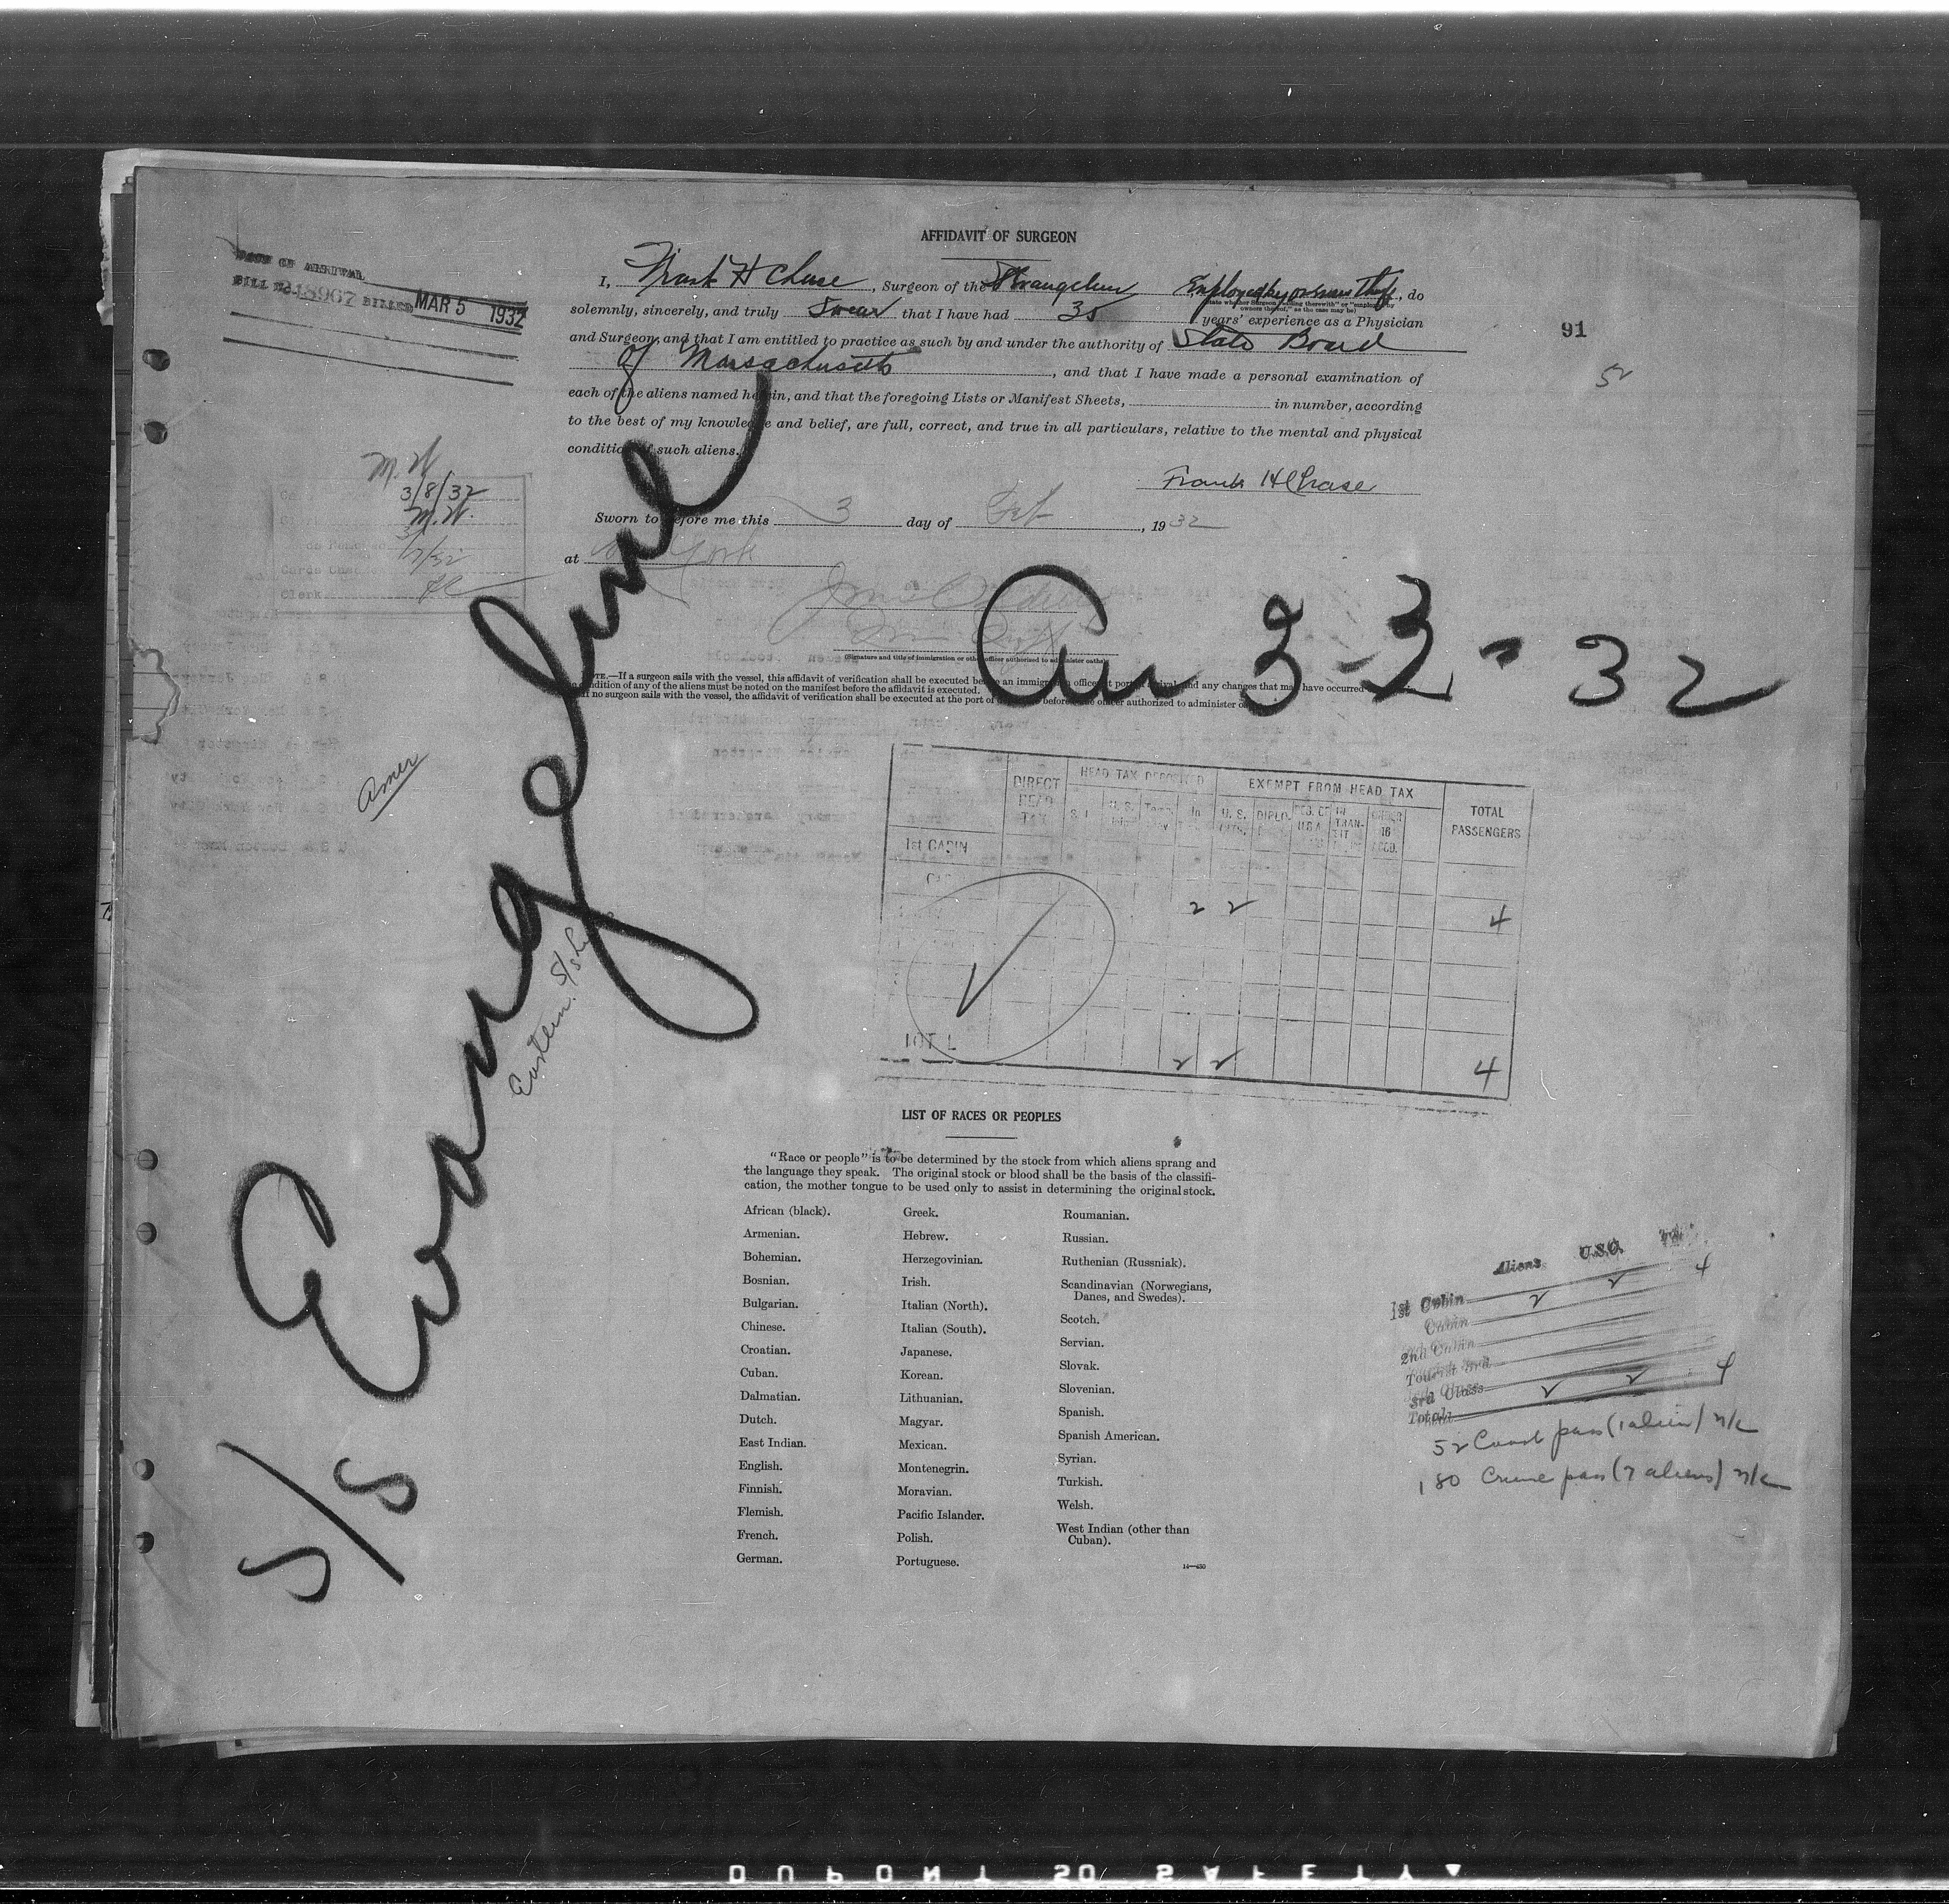 AFFIDAVIT OF SURGEON
I, Frank H Chase, Surgeon of the SS Evangeline Employed by owners Thof, do
solemnly, sincerely, and truly Swear that I have had 35 years' experience as a Physician
and Surgeon and that I am entitled to practice as such by and under the authority of State Board
of Massachusetts, and that I have made a personal examination of
each of the aliens named herein, and that the foregoing Lists or Manifest Sheets, in number, according
to the best of my knowledge and belief, are full, correct, and true in all particulars, relative to the mental and physical
condition of such aliens.
Frank H Chase
Sworn to before me this 3 day of , 19 32
at York
(Signature and title of immigration or other officer authorized to administer oaths)
NOTE.—If a surgeon sails with the vessel, this affidavit of verification shall be executed before an immigration officer at port of arrival, and any changes that may have occurred
condition of any of the aliens must be noted on the manifest before the affidavit is executed.
If no surgeon sails with the vessel, the affidavit of verification shall be executed at the port of before officer authorized to administer
OF ARRIVAL
BILL No. 218967 BILLED MAR 5 1932
91
52
M.W
3/8/32
M.W.
Clerk
S/S Evangeline
Arr 3-3-32
Amer
Eastern S/S
DIRECT HEAD TAX
HEAD TAX DEPOSITED
EXEMPT FROM HEAD TAX
TOTAL PASSENGERS
U. S. DIPLO. IN TRANSIT UNDER 16
1st CABIN
2 2 4
TOTAL
2 2 4
LIST OF RACES OR PEOPLES
"Race or people" is to be determined by the stock from which aliens sprang and
the language they speak. The original stock or blood shall be the basis of the classifi-
cation, the mother tongue to be used only to assist in determining the original stock.
African (black).
Armenian.
Bohemian.
Bosnian.
Bulgarian.
Chinese.
Croatian.
Cuban.
Dalmatian.
Dutch.
East Indian.
English.
Finnish.
Flemish.
French.
German.
Greek.
Hebrew.
Herzegovinian.
Irish.
Italian (North).
Italian (South).
Japanese.
Korean.
Lithuanian.
Magyar.
Mexican.
Montenegrin.
Moravian.
Pacific Islander.
Polish.
Portuguese.
Roumanian.
Russian.
Ruthenian (Russniak).
Scandinavian (Norwegians,
Danes, and Swedes).
Scotch.
Servian.
Slovak.
Slovenian.
Spanish.
Spanish American.
Syrian.
Turkish.
Welsh.
West Indian (other than
Cuban).
14—430
Aliens U.S.C.
1st Cabin 2 2 4
Cabin
2nd Cabin
Tourist 3rd
3rd Class
Total 2 2 4
52 Coast pass (1 alien) n/c
180 Cruise pass (7 aliens) n/c
DUPONT 20 SAFETY